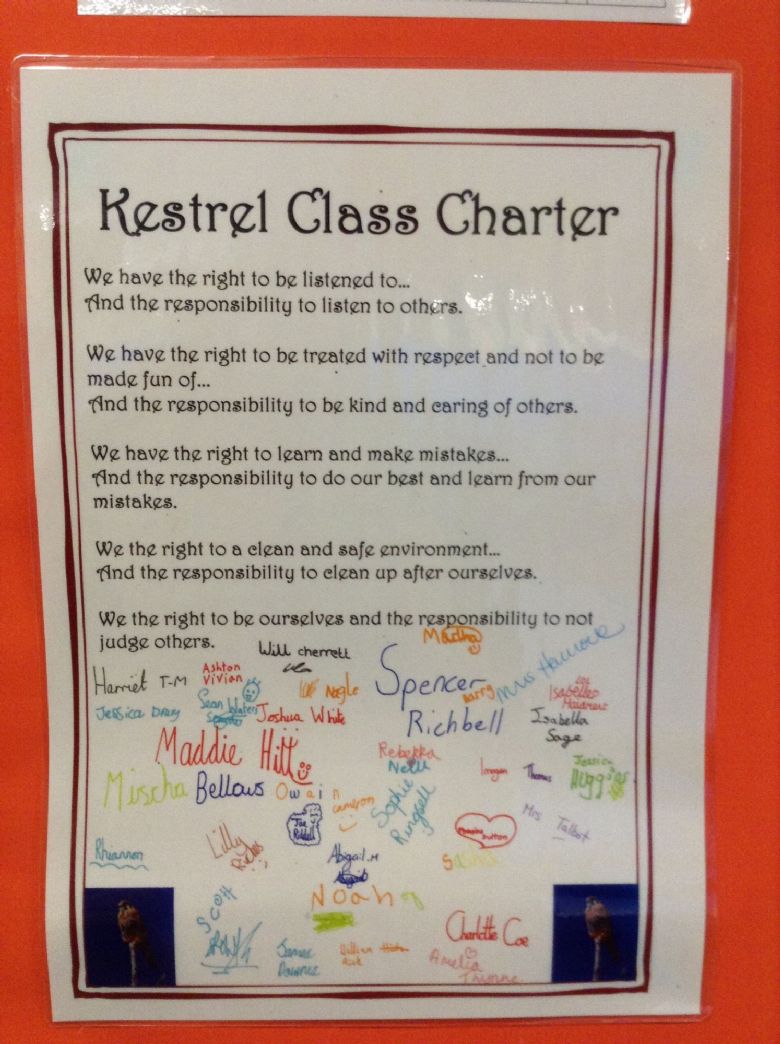 Kestrel Class Charter
We have the right to be listened to...
And the responsibility to listen to others.
We have the right to be treated with respect and not to be
made fun of...
And the responsibility to be kind and caring of others.
We have the right to learn and make mistakes...
And the responsibility to do our best and learn from our
mistakes.
We the right to a clean and safe environment...
And the responsibility to clean up after ourselves.
We the right to be ourselves and the responsibility to not
judge others.
Martha
Will cherrett
Mrs
Harriet T-M
Ashton
Vivian
Nagle
Spencer
Harry
Isabelle
Jessica
Sean
Joshua White
Richbell
Isabella
Sage
Maddie Hill
Rebekka
Nell
Imogen
Thomas
Jessica
Huggins
Mischa Bellows
Owain
Cameron
Sophie
Joe
Mrs Talbot
Rhiannon
Lilly
Abigail.M
Noah
Scott
Charlotte Coe
James
Amelia